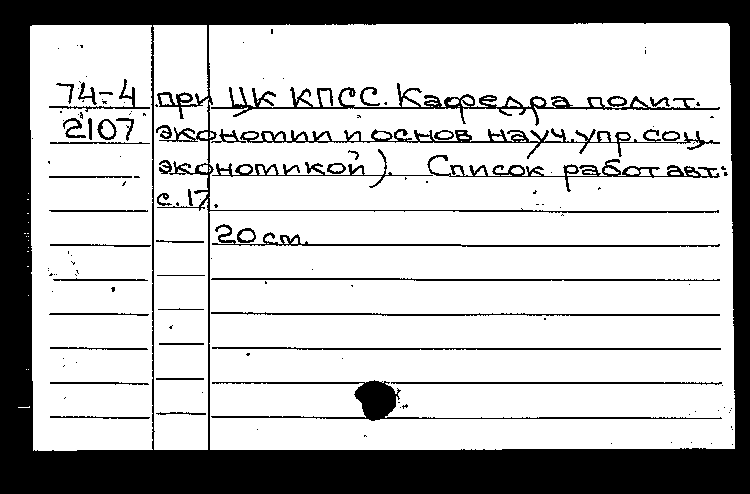 74-4 при ЦК КПСС. Кафедра полит.
2107 экономии и основ науч. упр. соц.
экономикой). Список работ авт.:
с. 17.
20 см.